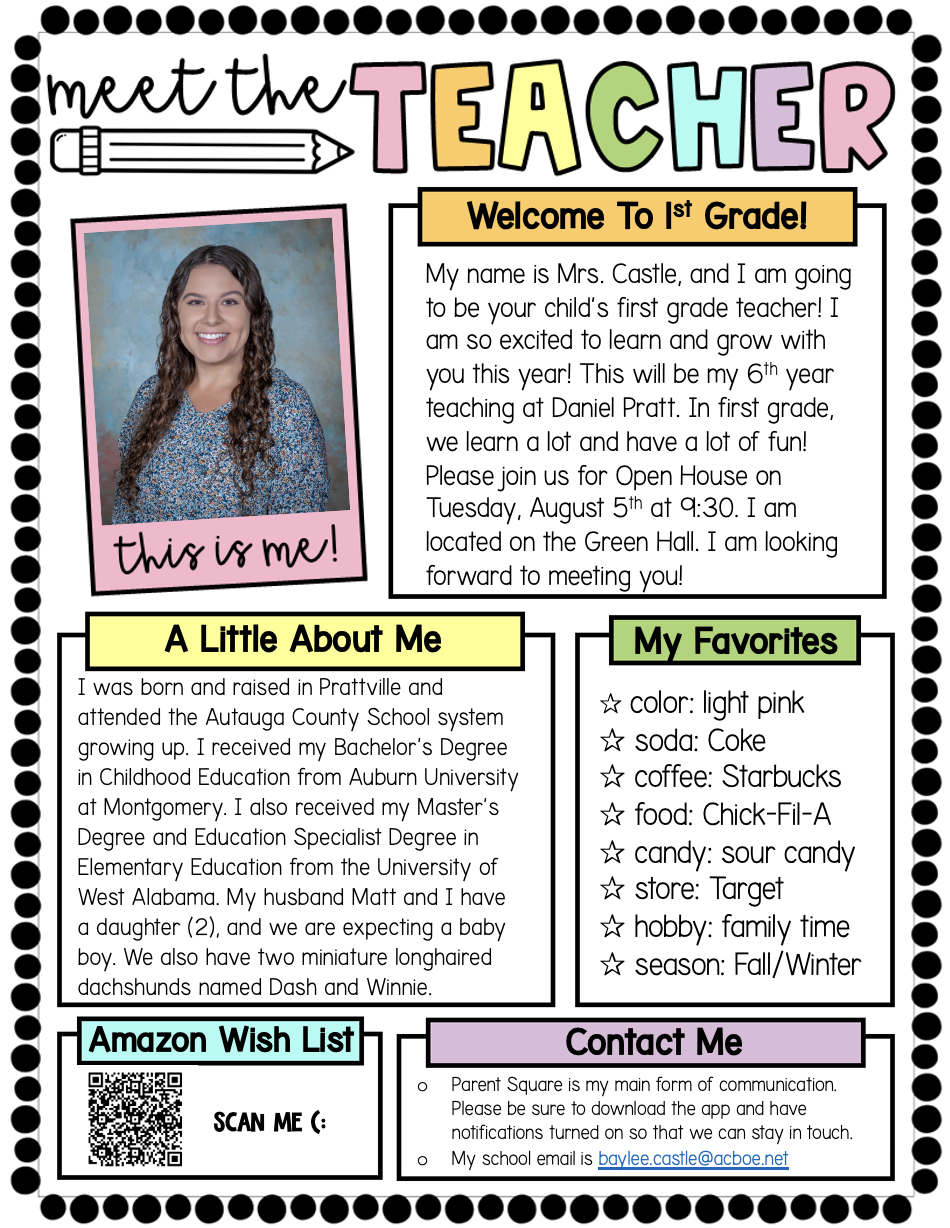 meet the TEACHER
Welcome To 1st Grade!
My name is Mrs. Castle, and I am going
to be your child's first grade teacher! I
am so excited to learn and grow with
you this year! This will be my 6th year
teaching at Daniel Pratt. In first grade,
we learn a lot and have a lot of fun!
Please join us for Open House on
Tuesday, August 5th at 9:30. I am
located on the Green Hall. I am looking
forward to meeting you!
this is me!
A Little About Me
I was born and raised in Prattville and
attended the Autauga County School system
growing up. I received my Bachelor's Degree
in Childhood Education from Auburn University
at Montgomery. I also received my Master's
Degree and Education Specialist Degree in
Elementary Education from the University of
West Alabama. My husband Matt and I have
a daughter (2), and we are expecting a baby
boy. We also have two miniature longhaired
dachshunds named Dash and Winnie.
My Favorites
☆ color: light pink
☆ soda: Coke
☆ coffee: Starbucks
☆ food: Chick-Fil-A
☆ candy: sour candy
☆ store: Target
☆ hobby: family time
☆ season: Fall/Winter
Amazon Wish List
SCAN ME (:
Contact Me
o Parent Square is my main form of communication.
Please be sure to download the app and have
notifications turned on so that we can stay in touch.
o My school email is baylee.castle@acboe.net